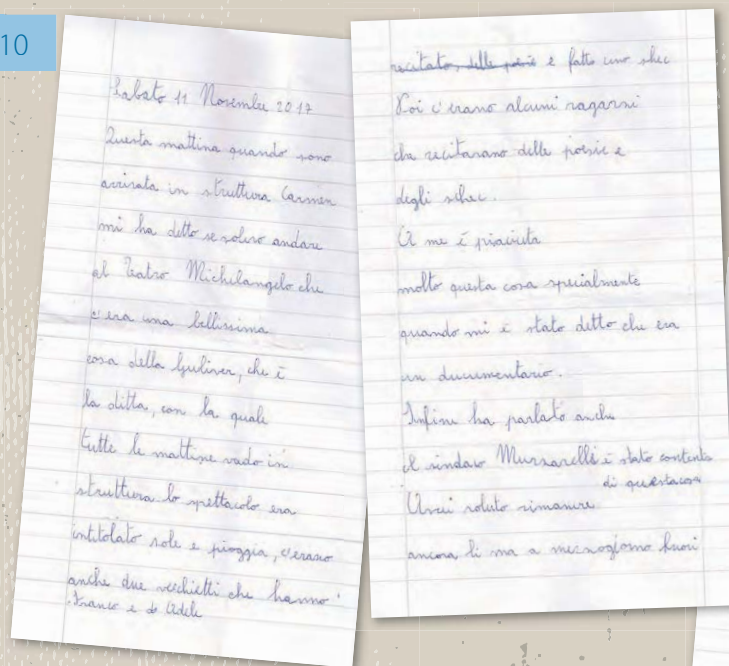 10
Sabato 11 Novembre 2017
Questa mattina quando sono
arrivata in struttura Carmen
mi ha detto se volevo andare
al Teatro Michelangelo che
c'era una bellissima
cosa della Guliver, che è
la ditta, con la quale
tutte le mattine vado in
struttura lo spettacolo era
intitolato sole e pioggia, c'erano
anche due vecchietti che hanno
Franco e Adele
recitato, delle poesie e fatto uno shec
Poi c'erano alcuni ragazzi
che recitavano delle poesie e
degli schec.
A me è piaciuta
molto questa cosa specialmente
quando mi è stato detto che era
un ducumentario.
Infine ha parlato anche
il sindaco Muzzarelli è stato contento
di questa cosa
Avrei voluto rimanere
ancora lì ma a mezzogiorno fuori